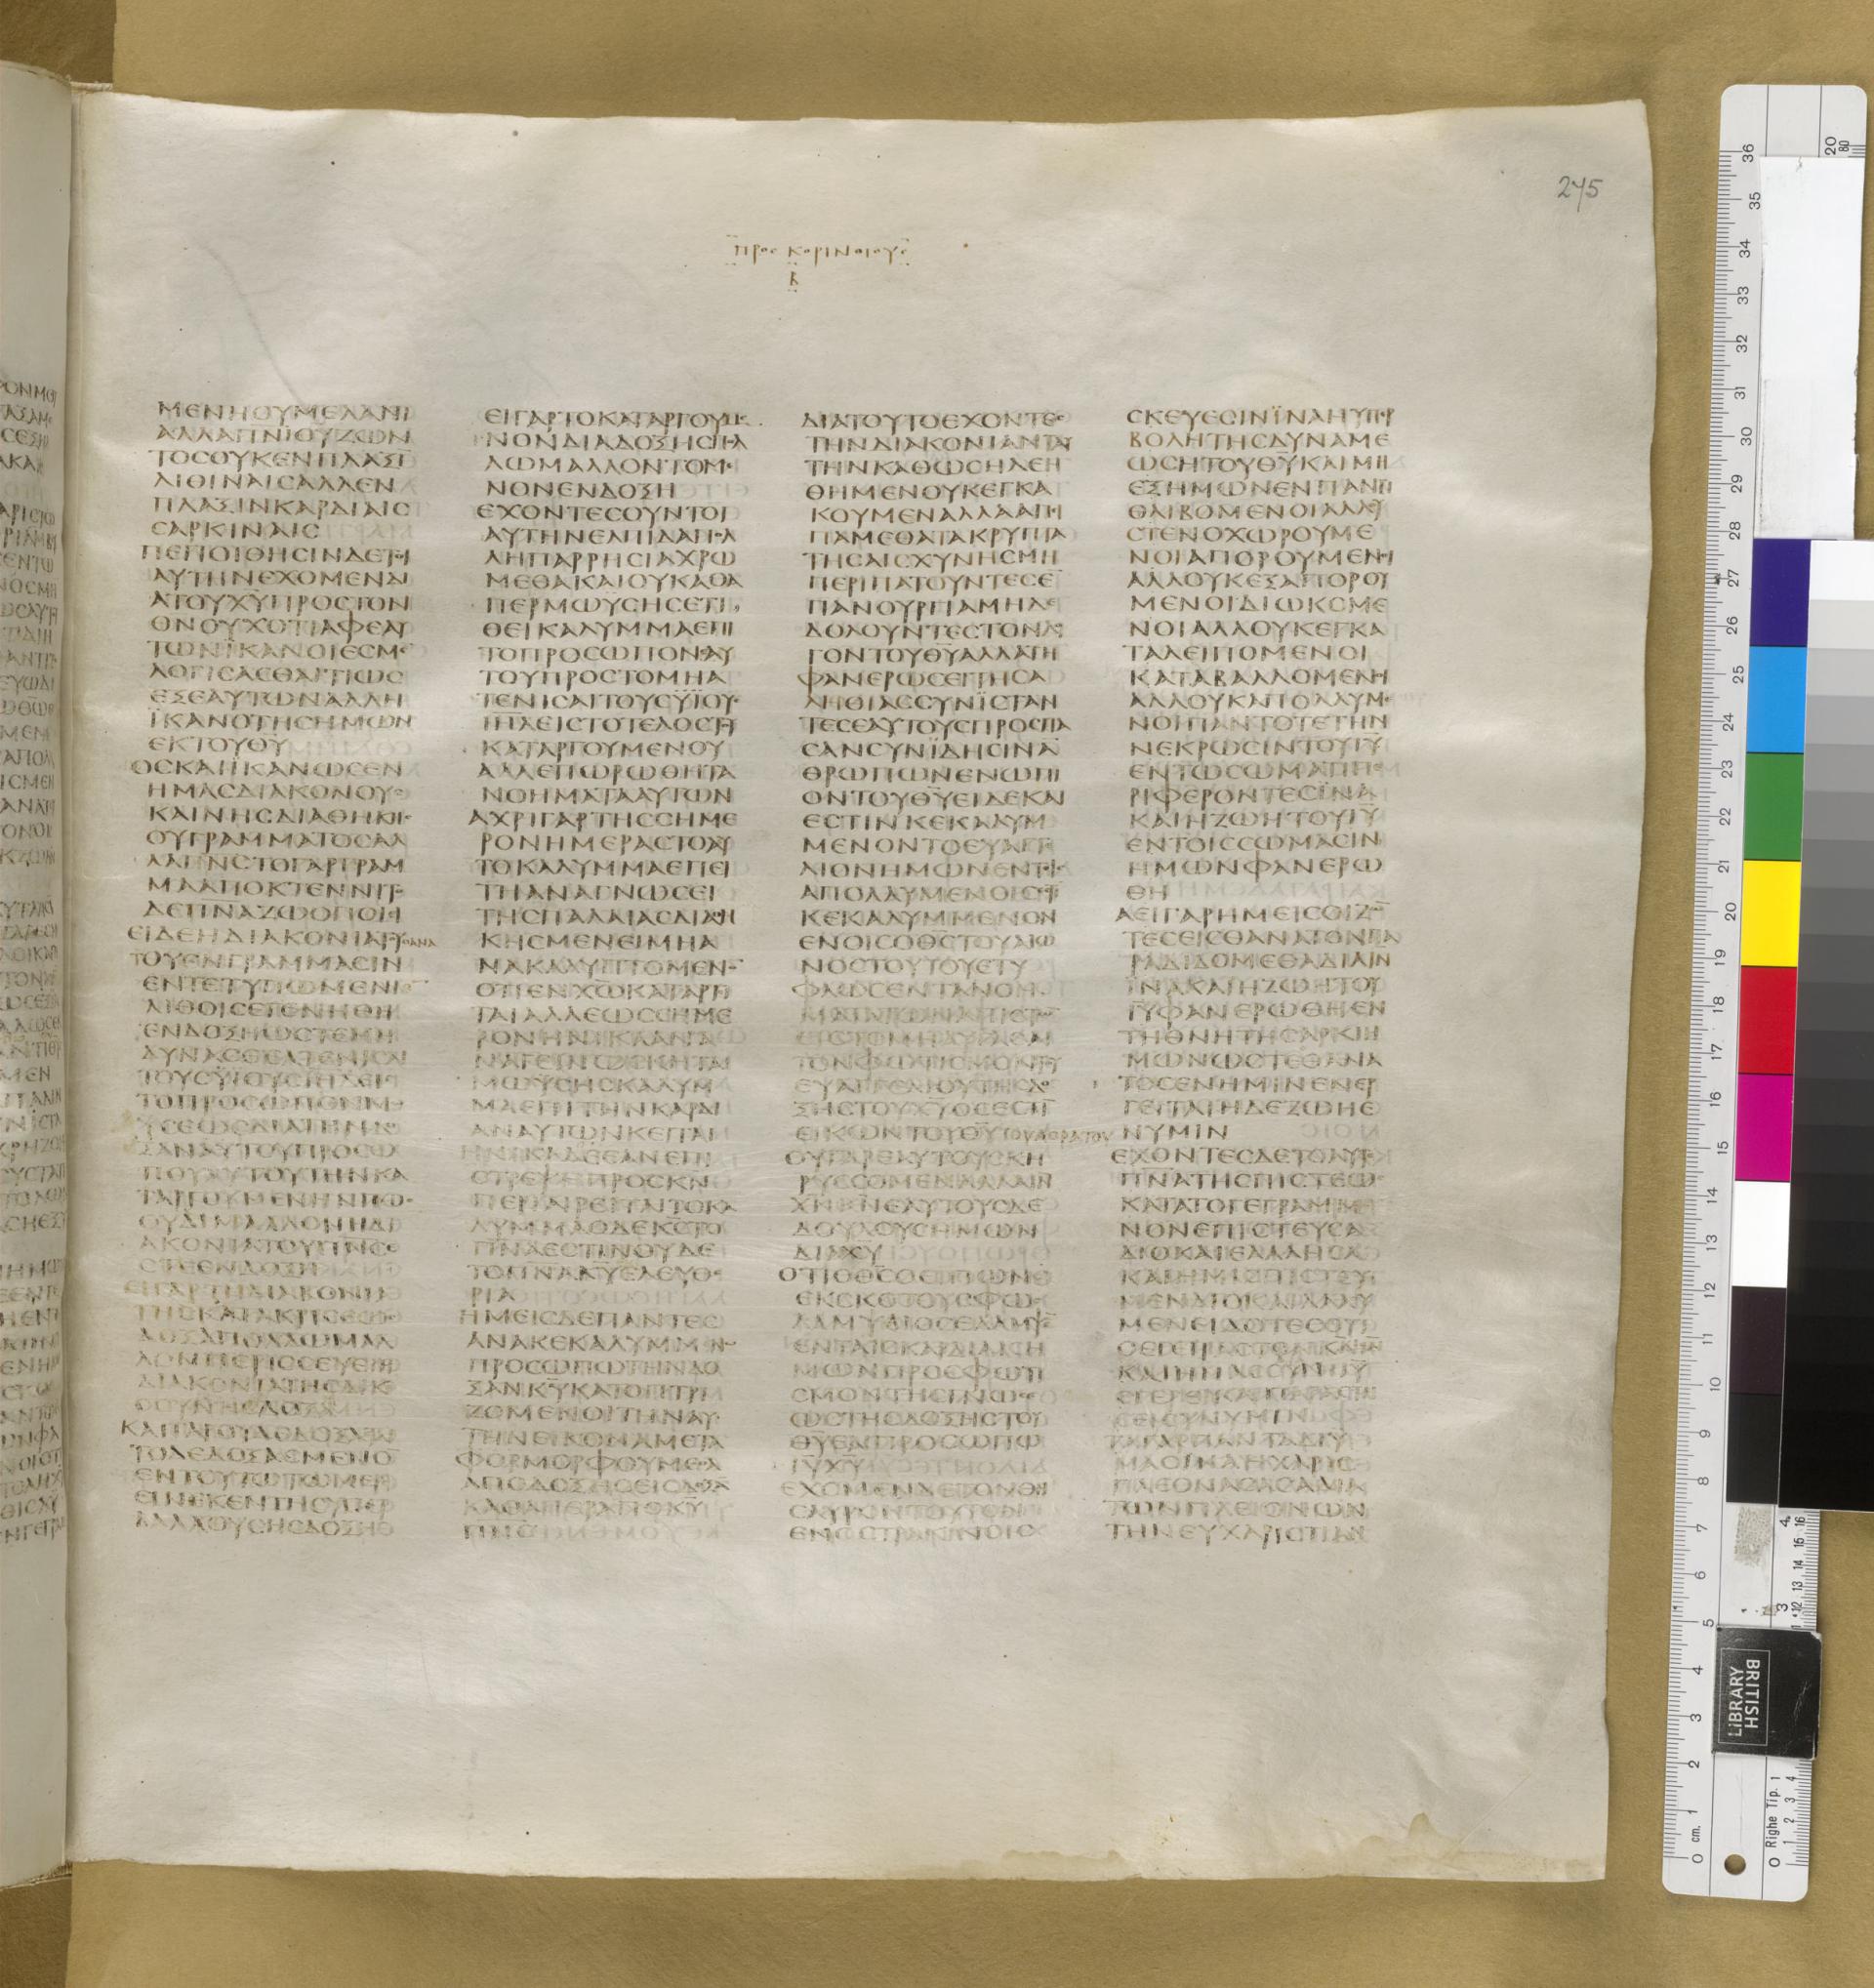 Προϲ Κορινθιουϲ
β
275
ΜΕΝΗΟΥΜΕΛΑΝΙ
ΑΛΛΑΠΝΙΘΥΖΩΝ
ΤΟϹΟΥΚΕΝΠΛΑΞΙ
ΛΙΘΙΝΑΙϹΑΛΛΕΝ
ΠΛΑΞΙΝΚΑΡΔΙΑΙϹ
ϹΑΡΚΙΝΑΙϹ
ΠΕΠΟΙΘΗϹΙΝΔΕΤΟΙ
ΑΥΤΗΝΕΧΟΜΕΝΔΙ
ΑΤΟΥΧΥΠΡΟϹΤΟΝ
ΘΝΟΥΧΟΤΙΑΦΕΑΥ
ΤΩΝΪΚΑΝΟΙΕϹΜΕ
ΛΟΓΙϹΑϹΘΑΙΤΙΩϹ
ΕΞΕΑΥΤΩΝΑΛΛΗ
ΪΚΑΝΟΤΗϹΗΜΩΝ
ΕΚΤΟΥΘΥ
ΟϹΚΑΙΪΚΑΝΩϹΕΝ
ΗΜΑϹΔΙΑΚΟΝΟΥϹ
ΚΑΙΝΗϹΔΙΑΘΗΚΗϹ
ΟΥΓΡΑΜΜΑΤΟϹΑΛ
ΛΑΠΝϹΤΟΓΑΡΓΡΑΜ
ΜΑΑΠΟΚΤΕΝΝΙΤΟ
ΔΕΠΝΑΖΩΟΠΟΙΕΙ
ΕΙΔΕΗΔΙΑΚΟΝΙΑΤΟΥΘΑΝΑ
ΤΟΥΕΝΓΡΑΜΜΑϹΙΝ
ΕΝΤΕΤΥΠΩΜΕΝΗ
ΛΙΘΟΙϹΕΓΕΝΗΘΗ
ΕΝΔΟΞΗΩϹΤΕΜΗ
ΔΥΝΑϹΘΕΑΤΕΝΙϹΑΙ
ΤΟΥϹΫΙΟΥϹΙΗΛΕΙϹ
ΤΟΠΡΟϹΩΠΟΝΜΩ
ΫϹΕΩϹΔΙΑΤΗΝΔΟ
ΞΑΝΑΥΤΟΥΠΡΟϹΩ
ΠΟΥΑΥΤΟΥΤΗΝΚΑ
ΤΑΡΓΟΥΜΕΝΗΝΠΩϹ
ΟΥΧΙΜΑΛΛΟΝΗΔΙ
ΑΚΟΝΙΑΤΟΥΠΝϹΕ
ϹΤΕΕΝΔΟΞΗ
ΕΙΓΑΡΤΗΔΙΑΚΟΝΙΑ
ΤΗϹΚΑΤΑΚΡΙϹΕΩϹ
ΔΟΞΑΠΟΛΛΩΜΑΛ
ΛΟΝΠΕΡΙϹϹΕΥΕΙΗ
ΔΙΑΚΟΝΙΑΤΗϹΔΙΚΑΙ
ΟϹΥΝΗϹΔΟΞΗ
ΚΑΙΓΑΡΟΥΔΕΔΟΞΑϹ
ΤΟΔΕΔΟΞΑϹΜΕΝΟ
ΕΝΤΟΥΤΩΤΩΜΕΡΙ
ΕΙΝΕΚΕΝΤΗϹΥΠΕΡ
ΒΑΛΛΟΥϹΗϹΔΟΞΗϹ
ΕΙΓΑΡΤΟΚΑΤΑΡΓΟΥΜΕ
ΝΟΝΔΙΑΔΟΞΗϹΠΟΛ
ΛΩΜΑΛΛΟΝΤΟΜΕ
ΝΟΝΕΝΔΟΞΗ
ΕΧΟΝΤΕϹΟΥΝΤΟΙ
ΑΥΤΗΝΕΛΠΙΔΑΠΟΛ
ΛΗΠΑΡΡΗϹΙΑΧΡΩ
ΜΕΘΑΚΑΙΟΥΚΑΘΑ
ΠΕΡΜΩΫϹΗϹΕΤΙ
ΘΕΙΚΑΛΥΜΜΑΕΠΙ
ΤΟΠΡΟϹΩΠΟΝΑΥ
ΤΟΥΠΡΟϹΤΟΜΗΑ
ΤΕΝΙϹΑΙΤΟΥϹΫΪΟΥϹ
ΙΗΛΕΙϹΤΟΤΕΛΟϹΤΟΥ
ΚΑΤΑΡΓΟΥΜΕΝΟΥ
ΑΛΛΕΠΩΡΩΘΗΤΑ
ΝΟΗΜΑΤΑΑΥΤΩΝ
ΑΧΡΙΓΑΡΤΗϹϹΗΜΕ
ΡΟΝΗΜΕΡΑϹΤΟΑΥ
ΤΟΚΑΛΥΜΜΑΕΠΕΙ
ΤΗΑΝΑΓΝΩϹΕΙ
ΤΗϹΠΑΛΑΙΑϹΔΙΑΘΗ
ΚΗϹΜΕΝΕΙΜΗΑ
ΝΑΚΑΛΥΠΤΟΜΕΝΟ
ΟΤΙΕΝΧΩΚΑΤΑΡΓΙ
ΤΑΙΑΛΛΕΩϹϹΗΜΕ
ΡΟΝΗΝΙΚΑΑΝΑ
ΝΑΓΕΙΝΩϹΚΗΤΑΙ
ΜΩΫϹΗϹΚΑΛΥΜ
ΜΑΕΠΙΤΗΝΚΑΡΔΙ
ΑΝΑΥΤΩΝΚΕΙΤΑΙ
ΗΝΙΚΑΔΕΕΑΝΕΠΙ
ϹΤΡΕΨΗΠΡΟϹΚΝ
ΠΕΡΙΑΙΡΕΙΤΑΙΤΟΚΑ
ΛΥΜΜΑΟΔΕΚϹΤΟ
ΠΝΑΕϹΤΙΝΟΥΔΕ
ΤΟΠΝΑΚΥΕΛΕΥΘΕ
ΡΙΑ
ΗΜΕΙϹΔΕΠΑΝΤΕϹ
ΑΝΑΚΕΚΑΛΥΜΜΕΝΩ
ΠΡΟϹΩΠΩΤΗΝΔΟ
ΞΑΝΚΥΚΑΤΟΠΤΡΙ
ΖΟΜΕΝΟΙΤΗΝΑΥ
ΤΗΝΕΙΚΟΝΑΜΕΤΑ
ΜΟΡΦΟΥΜΕΘΑ
ΑΠΟΔΟΞΗϹΕΙϹΔΟΞΑ
ΚΑΘΑΠΕΡΑΠΟΚΥ
ΠΝϹ
ΔΙΑΤΟΥΤΟΕΧΟΝΤΕϹ
ΤΗΝΔΙΑΚΟΝΙΑΝΤΑΥ
ΤΗΝΚΑΘΩϹΗΛΕΗ
ΘΗΜΕΝΟΥΚΕΓΚΑ
ΚΟΥΜΕΝΑΛΛΑΑΠΙ
ΠΑΜΕΘΑΤΑΚΡΥΠΤΑ
ΤΗϹΑΙϹΧΥΝΗϹΜΗ
ΠΕΡΙΠΑΤΟΥΝΤΕϹΕ
ΠΑΝΟΥΡΓΙΑΜΗΔΕ
ΔΟΛΟΥΝΤΕϹΤΟΝΛΟ
ΓΟΝΤΟΥΘΥΑΛΛΑΤΗ
ΦΑΝΕΡΩϹΕΙΤΗϹΑ
ΛΗΘΙΑϹϹΥΝΪϹΤΑΝ
ΤΕϹΕΑΥΤΟΥϹΠΡΟϹΠΑ
ϹΑΝϹΥΝΪΔΗϹΙΝΑ
ΘΡΩΠΩΝΕΝΩΠΙ
ΟΝΤΟΥΘΥΕΙΔΕΚΑΙ
ΕϹΤΙΝΚΕΚΑΛΥΜ
ΜΕΝΟΝΤΟΕΥΑΓΓΕ
ΛΙΟΝΗΜΩΝΕΝΤΟΙϹ
ΑΠΟΛΛΥΜΕΝΟΙϹΕϹΤΙ
ΚΕΚΑΛΥΜΜΕΝΟΝ
ΕΝΟΙϹΟΘϹΤΟΥΑΙΩ
ΝΟϹΤΟΥΤΟΥΕΤΥ
ΦΛΩϹΕΝΤΑΝΟΗ
ΜΑΤΑΤΩΝΑΠΙϹΤΩ
ΕΙϹΤΟΜΗΑΥΓΑϹΑΙ
ΤΟΝΦΩΤΙϹΜΟΝΤΟΥ
ΕΥΑΓΓΕΛΙΟΥΤΗϹΔΟ
ΞΗϹΤΟΥΧΥΟϹΕϹΤΙ
ΕΙΚΩΝΤΟΥΘΥΤΟΥΑΟΡΑΤΟΥ
ΟΥΓΑΡΕΑΥΤΟΥϹΚΗ
ΡΥϹϹΟΜΕΝΑΛΛΑΙΗ
ΧΝΚΝΕΑΥΤΟΥϹΔΕ
ΔΟΥΛΟΥϹΗΜΩΝ
ΔΙΑΧΥ
ΟΤΙΟΘϹΟΕΙΠΩΝΕ
ΕΚϹΚΟΤΟΥϹΦΩϹ
ΛΑΜΨΕΙΟϹΕΛΑΜΨΕ
ΕΝΤΑΙϹΚΑΡΔΙΑΙϹΗ
ΜΩΝΠΡΟϹΦΩΤΙ
ϹΜΟΝΤΗϹΓΝΩϹΕ
ΩϹΤΗϹΔΟΞΗϹΤΟΥ
ΘΥΕΝΠΡΟϹΩΠΩ
ΙΥΧΥ
ΕΧΟΜΕΝΔΕΤΟΝΘΗ
ϹΑΥΡΟΝΤΟΥΤΟΝ
ΕΝΟϹΤΡΑΚΙΝΟΙϹ
ϹΚΕΥΕϹΙΝΪΝΑΗΥΠΕΡ
ΒΟΛΗΤΗϹΔΥΝΑΜΕ
ΩϹΗΤΟΥΘΥΚΑΙΜΗ
ΕΞΗΜΩΝΕΝΠΑΝΤΙ
ΘΛΙΒΟΜΕΝΟΙΑΛΛΟΥ
ϹΤΕΝΟΧΩΡΟΥΜΕ
ΝΟΙΑΠΟΡΟΥΜΕΝΟΙ
ΑΛΛΟΥΚΕΞΑΠΟΡΟΥ
ΜΕΝΟΙΔΙΩΚΟΜΕ
ΝΟΙΑΛΛΟΥΚΕΓΚΑ
ΤΑΛΕΙΠΟΜΕΝΟΙ
ΚΑΤΑΒΑΛΛΟΜΕΝΟΙ
ΑΛΛΟΥΚΑΠΟΛΛΥΜΕ
ΝΟΙΠΑΝΤΟΤΕΤΗΝ
ΝΕΚΡΩϹΙΝΤΟΥΙΥ
ΕΝΤΩϹΩΜΑΤΙΠΕ
ΡΙΦΕΡΟΝΤΕϹΪΝΑ
ΚΑΙΗΖΩΗΤΟΥΙΥ
ΕΝΤΟΙϹϹΩΜΑϹΙΝ
ΗΜΩΝΦΑΝΕΡΩ
ΘΗ
ΑΕΙΓΑΡΗΜΕΙϹΟΙΖΩ
ΤΕϹΕΙϹΘΑΝΑΤΟΝΠΑ
ΡΑΔΙΔΟΜΕΘΑΔΙΑΙΝ
ΪΝΑΚΑΙΗΖΩΗΤΟΥ
ΙΥΦΑΝΕΡΩΘΗΕΝ
ΤΗΘΝΗΤΗϹΑΡΚΙΗ
ΜΩΝΩϹΤΕΘΑΝΑ
ΤΟϹΕΝΗΜΙΝΕΝΕΡ
ΓΕΙΤΑΙΗΔΕΖΩΗΕ
ΝΥΜΙΝ
ΕΧΟΝΤΕϹΔΕΤΟΑΥΤΟ
ΠΝΑΤΗϹΠΙϹΤΕΩϹ
ΚΑΤΑΤΟΓΕΓΡΑΜΜΕ
ΝΟΝΕΠΙϹΤΕΥϹΑ
ΔΙΟΚΑΙΕΛΑΛΗϹΑ
ΚΑΙΗΜΙϹΠΙϹΤΕΥΟ
ΜΕΝΔΙΟΚΑΙΛΑΛΟΥ
ΜΕΝΕΙΔΟΤΕϹΟΤΙ
ΟΕΓΕΙΡΑϹΤΟΝΚΝΙΝ
ΚΑΙΗΜΑϹϹΥΝΙΥ
ΕΓΕΡΕΙΚΑΙΠΑΡΑϹΤΗ
ϹΕΙϹΥΝΥΜΙΝ
ΤΑΓΑΡΠΑΝΤΑΔΙΥ
ΜΑϹΙΝΑΗΧΑΡΙϹ
ΠΛΕΟΝΑϹΑϹΑΔΙΑ
ΤΩΝΠΛΕΙΟΝΩΝ
ΤΗΝΕΥΧΑΡΙϹΤΙΑΝ
BRITISH
LIBRARY